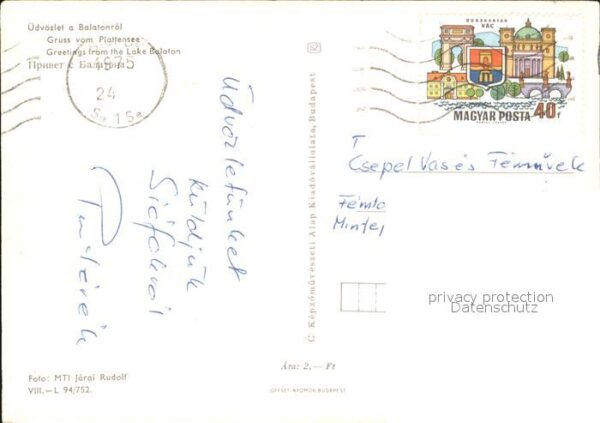 Üdvözlet a Balatonról
Gruss vom Plattensee
Greetings from the Lake Balaton
Привет с Балатона
1975
24
Üdvözletünket
küldjük
Siófokról
C Képzőművészeti Alap Kiadóvállalata, Budapest
DUNAKANYAR
VÁC
MAGYAR POSTA 40f
T
Csepel Vas és Fémművek
Fémto
Mintej
privacy protection
Datenschutz
Ára: 2,— Ft
OFFSET-NYOMDA BUDAPEST
Foto: MTI Járai Rudolf
VIII.—L 94/752.